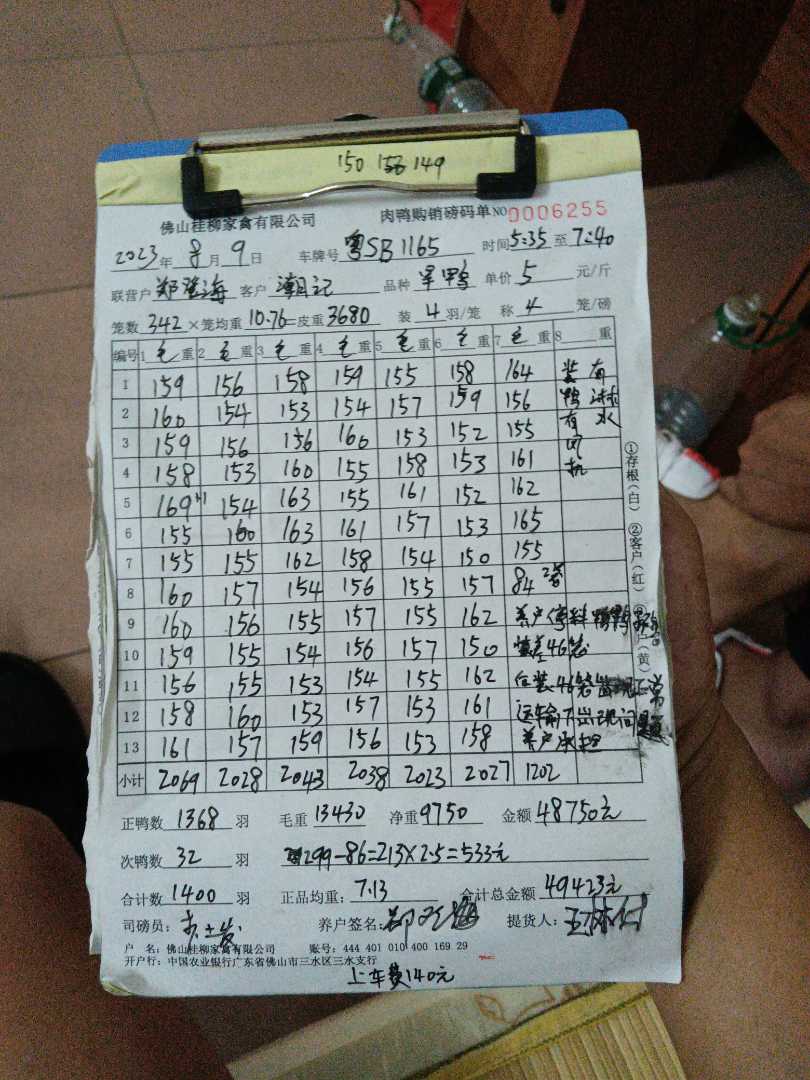 150 156 149
佛山桂柳家禽有限公司 肉鸭购销磅码单 NO 0006255
2023年8月9日 车牌号 粤SB1165 时间5:35至7:40
联营户 郑 海 客户 潮记 品种 旱鸭 单价 5 元/斤
笼数 342 ×笼均重 10.76 =皮重 3680 装 4 羽/笼 称 4 笼/磅
编号 1 毛 重 2 毛 重 3 毛 重 4 毛 重 5 毛 重 6 毛 重 7 毛 重 8 重
1 159 156 158 159 155 158 164 装 有
2 160 154 153 154 157 159 156 鸭 淋
3 159 156 156 160 153 152 155 有 水
4 158 153 160 155 158 153 161 风机
5 169 154 163 155 161 152 162
6 155 160 163 161 157 153 165
7 155 155 162 158 154 150 155
8 160 157 154 156 155 157 84 2笼
9 160 156 155 157 155 162 养户
10 159 155 154 156 157 150 46笼
11 156 155 153 154 155 162 装46笼 正常
12 158 160 153 157 153 161 运输 出现问题
13 161 157 159 156 153 158 养户承担
小计 2069 2028 2043 2038 2023 2027 1202
①存根(白) ②客户(红) 户(黄)
正鸭数 1368 羽 毛重 13430 净重 9750 金额 48750元
次鸭数 32 羽 299-86=213×2.5=533元
合计数 1400 羽 正品均重: 7.13 合计总金额 49423元
司磅员: 养户签名: 提货人:
户 名: 佛山桂柳家禽有限公司 账号: 444 401 010 400 169 29
开户行: 中国农业银行广东省佛山市三水区三水支行
上车费140元